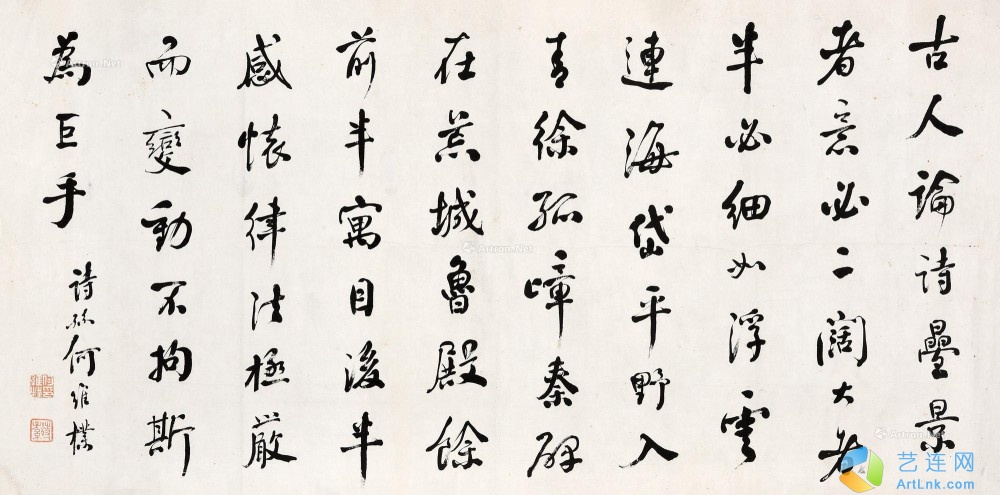 古人論詩疊景
者意必二闊大者
半必細如浮雲
連海岱平野入
青徐孤嶂秦碑
在荒城魯殿餘
前半寓目後半
感懷律法極嚴
而變動不拘斯
為巨手
詩孫何維樸
Artron.Net
艺连网
ArtLnk.com